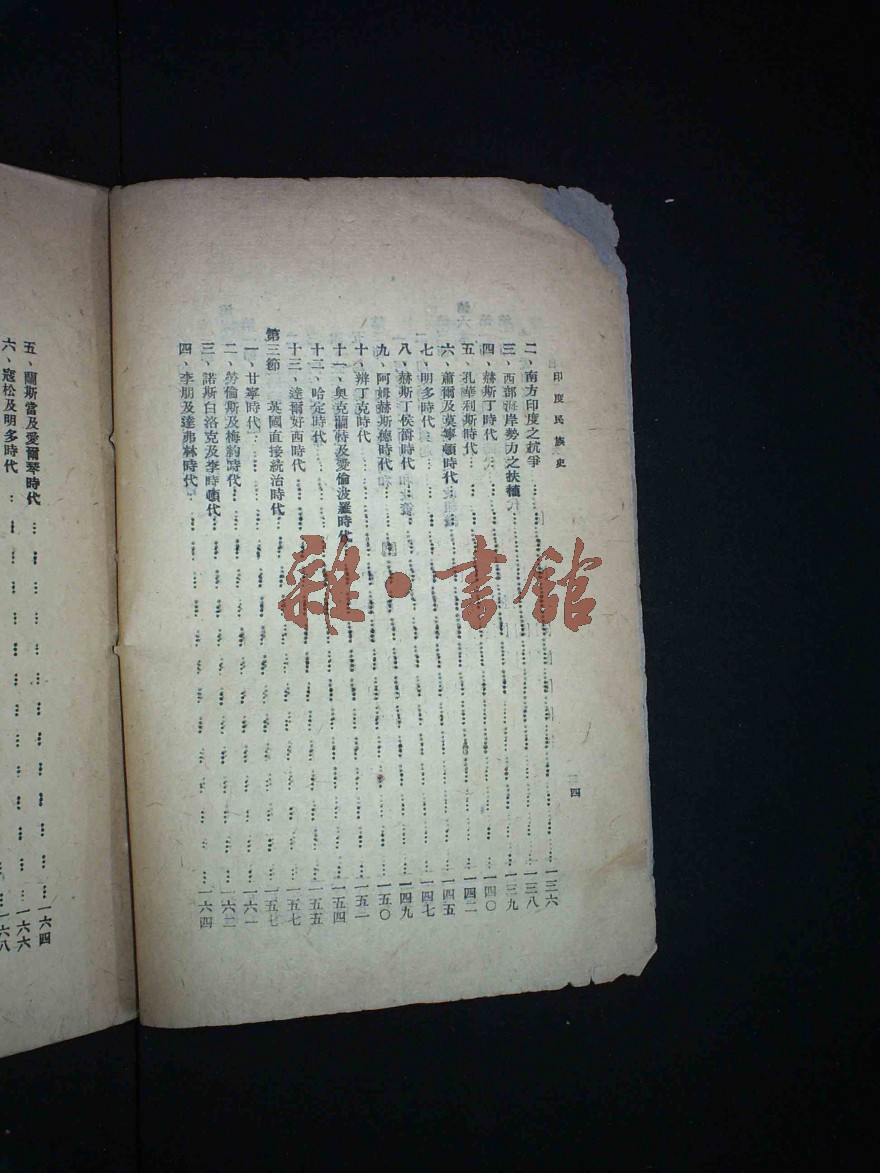 印度民族史
四
二、南方印度之抗爭……一三六
三、西部海岸勢力之扶植……一三八
四、赫斯丁時代……一三九
五、孔華利斯時代……一四〇
六、蕭爾及莫寧頓時代……一四二
七、明多時代……一四五
八、赫斯丁侯爵時代……一四七
九、阿姆赫斯德時代……一四九
十、辨丁克時代……一五〇
十一、奧克蘭特及愛倫波羅時代……一五二
十二、哈定時代……一五四
十三、達爾好西時代……一五五
第三節 英國直接統治時代……一五七
一、甘寧時代……一五七
二、勞倫斯及梅約時代……一六一
三、諾斯白洛克及李頓時代……一六二
四、李朋及達弗林時代……一六四
五、蘭斯當及愛爾琴時代……一六四
六、寇松及明多時代……一六六
一六八
雜·書館